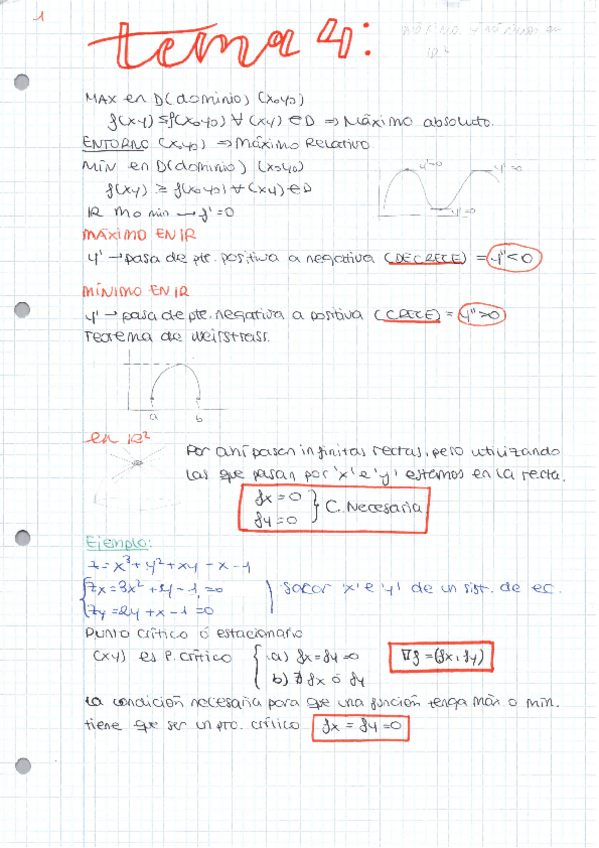 1
tema 4:
MÁXIMO Y MÍNIMOS en
IR²
MAX en D(dominio) (x₀y₀)
f(xy) ≤ f(x₀y₀) ∀ (xy) ∈ D ⇒ Máximo absoluto.
ENTORNO (x₀y₀) ⇒ Máximo Relativo
MÍN en D(dominio) (x₀y₀)
f(xy) ≥ f(x₀y₀) ∀ (xy) ∈ D
y'=0
y'=0
y'=0
IR M o min → f'=0
MÁXIMO EN IR
y' → pasa de pte. positiva a negativa (DECRECE) = y''<0
MÍNIMO EN IR
y' → pasa de pte. negativa a positiva (CRECE) = y''>0
Teorema de Weirstrass.
a b
en IR²
Por ahí pasan infinitas rectas, pero utilizando
las que pasan por 'x' e 'y' estamos en la recta.
fx = 0
fy = 0 } C. Necesaria
Ejemplo:
z = x³ + y² + xy - x - 1
zx = 3x² + y - 1 = 0
zy = 2y + x - 1 = 0
sacar 'x' e 'y' de un sist. de ec.
Punto crítico ó estacionario
(xy) es P. crítico { a) fx = fy = 0
b) ∄ fx ó fy
∇f = (fx, fy)
La condición necesaria para que una función tenga máx o min.
tiene que ser un pto. crítico fx = fy = 0